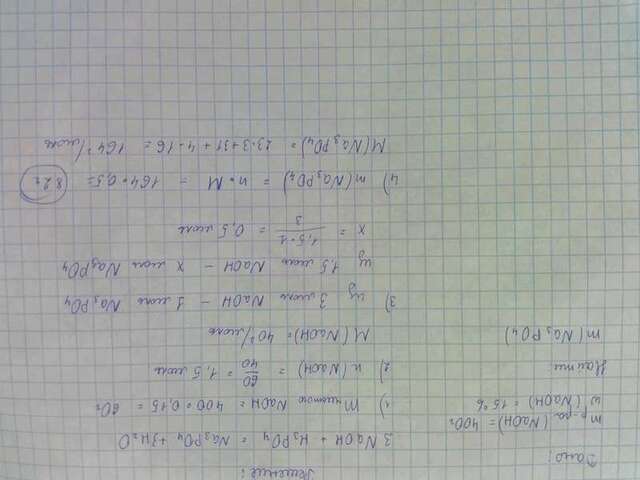 Дано:
m р-ра (NaOH) = 400г
ω (NaOH) = 15%
Найти:
m (Na₃PO₄)
Решение:
3 NaOH + H₃PO₄ = Na₃PO₄ + 3H₂O
1) m чистого NaOH = 400 * 0,15 = 60г
2) n (NaOH) = 60/40 = 1,5 моль
M (NaOH) = 40 г/моль
3) Из 3 моль NaOH – 1 моль Na₃PO₄
Из 1,5 моль NaOH – x моль Na₃PO₄
x = 1,5 · 1 / 3 = 0,5 моль
4) m (Na₃PO₄) = n * M = 164 * 0,5 = 82г
M (Na₃PO₄) = 23·3 + 31 + 4·16 = 164 г/моль